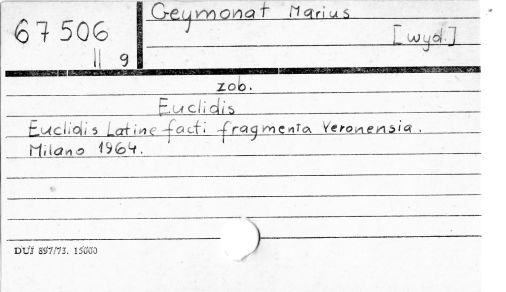 Geymonat Marius
67506
[wyd.]
II 9
zob.
Euclidis
Euclidis Latine facti fragmenta Veronensia.
Milano 1964.
DUJ 897/73. 15000